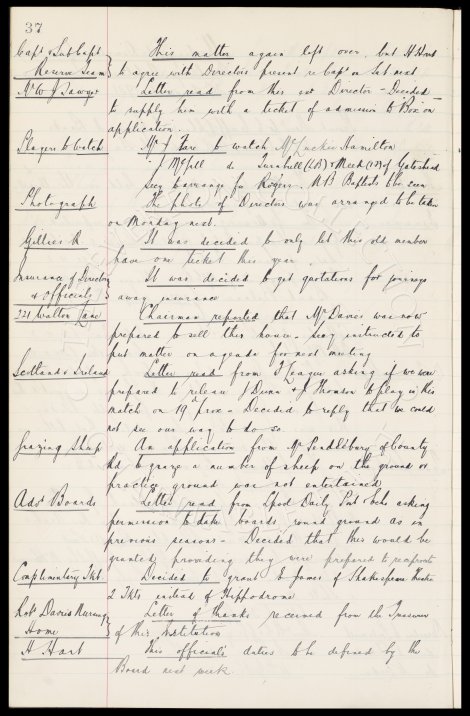 37
Capt & Sub Capt Reserve Team
This matter again left over but H Hart
to agree with Directors present re Capt on Sat next
Mr W J Sawyer
Letter read from this ex Director - Decided
to supply him with a ticket of admission to Box on
application.
Players to Watch
Mr Fare to watch McLuckie Hamilton
J McGill do Turnbull (LB) & Meek (IR) of Gateshead
Secy to arrange for Rogers. N B Baptists to be seen
Photograph
The photo of Directors was arranged to be taken
on Monday next.
Gillies R
It was decided to only let this old member
have one ticket this year
Insurance of Directors & Officials
It was decided to get quotations for journeys
away insurance
221 Walton Lane
Chairman reported that Mr Davies was now
prepared to sell this house - Secy instructed to
put matter on agenda for next meeting
Scotland v Ireland
Letter read from I League asking if we were
prepared to release J Dunn & J Thomson to play in this
match on 19th prox - Decided to reply that we could
not see our way to do so.
Grazing Sheep
An application from Mr Pendlebury of County
Rd to graze a number of sheep on the ground or
practice ground was not entertained
Advt Boards
Letter read from Lpool Daily Post & Echo asking
permission to boards round ground as in
previous seasons - Decided that this would be
granted providing they were prepared to reciprocate
Complimentary Tkts
Decided to grant E James of Shakespeare theatre
2 Tkts instead of Hippodrome
Robt Davies Nursing Home
Letter of thanks received from the Treasurer
of this Institution
H Hart
This official's duties to be defined by the
Board next week.